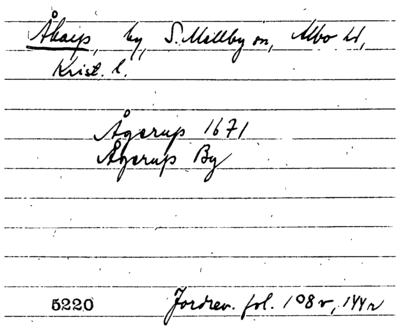 Åkarp, by, S. Mellby sn, Albo hd,
Krist. l.
Ågerup 1671
Ågerup By
5220 Jordrev. fol. 108v, 144v